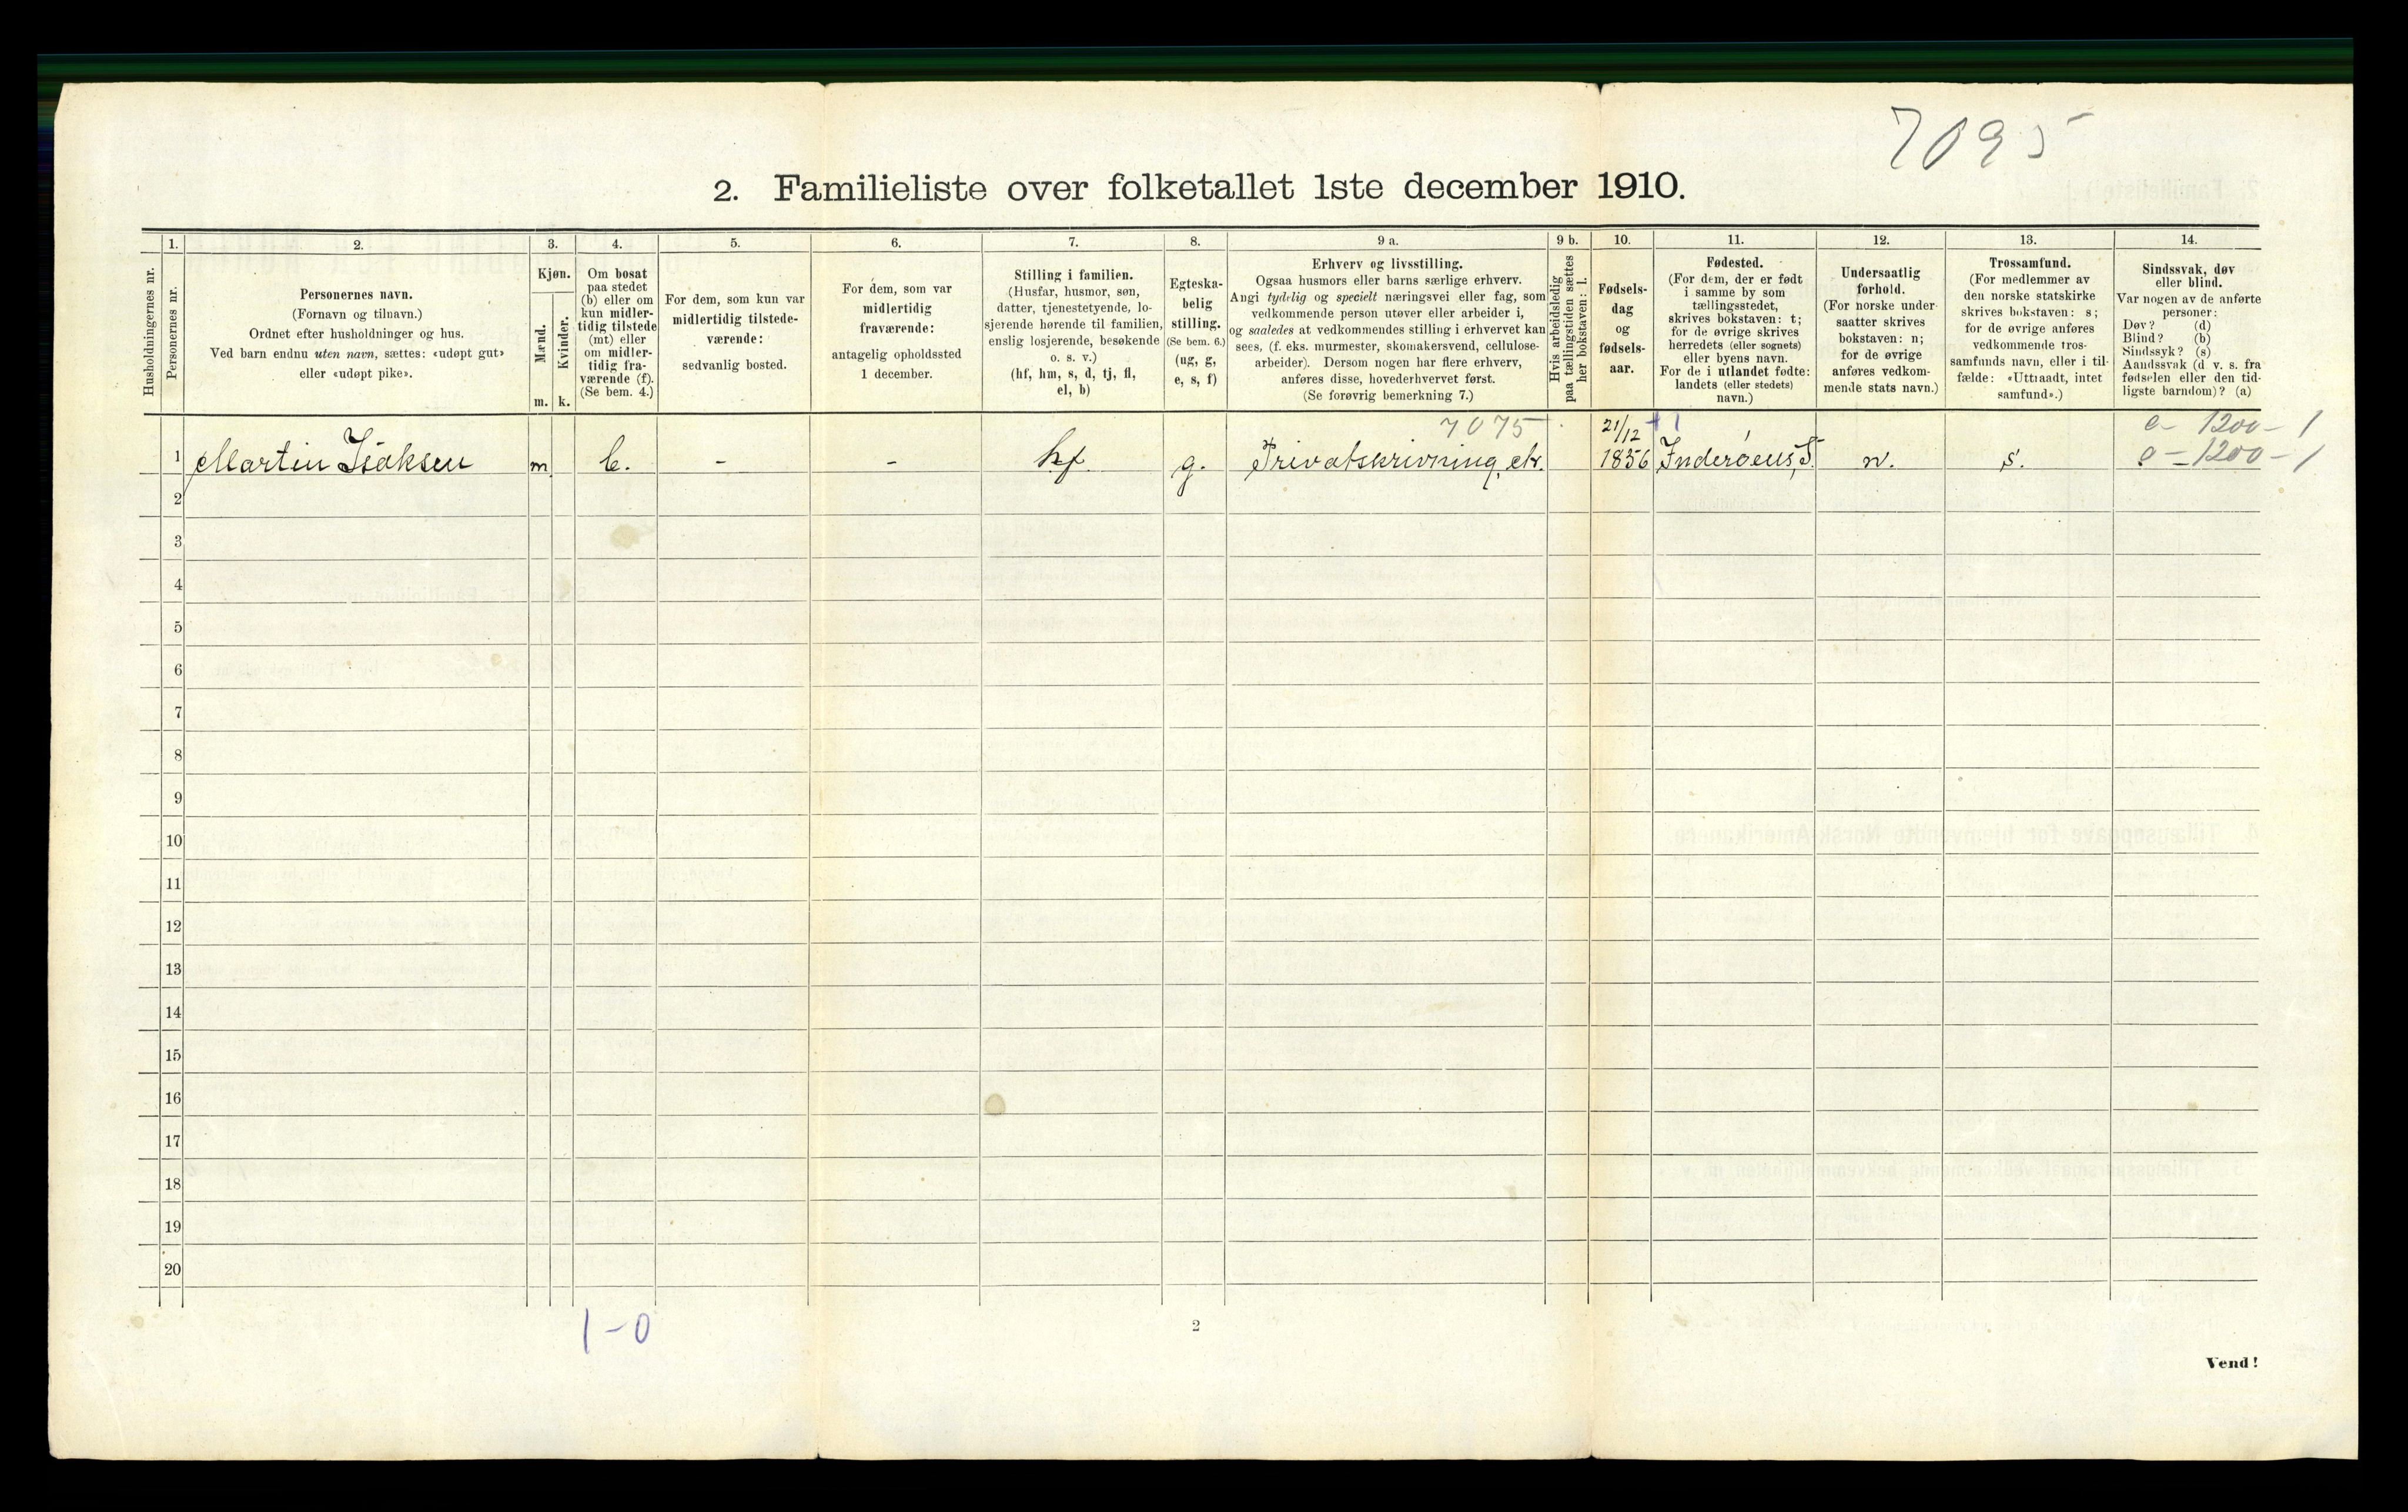 7095
2. Familieliste over folketallet 1ste december 1910.
Husholdningernes nr.
1.
Personernes nr.
2.
Personernes navn.
(Fornavn og tilnavn.)
Ordnet efter husholdninger og hus.
Ved barn endnu uten navn, sættes: «udøpt gut»
eller «udøpt pike».
3.
Kjøn.
Mænd.
Kvinder.
m. k.
4.
Om bosat
paa stedet
(b) eller om
kun midler-
tidig tilstede
(mt) eller
om midler-
tidig fra-
værende (f).
(Se bem. 4.)
5.
For dem, som kun var
midlertidig tilstede-
værende:
sedvanlig bosted.
6.
For dem, som var
midlertidig
fraværende:
antagelig opholdssted
1 december.
7.
Stilling i familien.
(Husfar, husmor, søn,
datter, tjenestetyende, lo-
sjerende hørende til familien,
enslig losjerende, besøkende
o. s. v.)
(hf, hm, s, d, tj, fl,
el, b)
8.
Egteska-
belig
stilling.
(Se bem. 6.)
(ug, g,
e, s, f)
9 a.
Erhverv og livsstilling.
Ogsaa husmors eller barns særlige erhverv.
Angi tydelig og specielt næringsvei eller fag, som
vedkommende person utøver eller arbeider i,
og saaledes at vedkommendes stilling i erhvervet kan
sees, (f. eks. murmester, skomakersvend, cellulose-
arbeider). Dersom nogen har flere erhverv,
anføres disse, hovederhvervet først.
(Se forøvrig bemerkning 7.)
9 b.
Hvis arbeidsledig
paa tællingstiden sættes
her bokstaven: l.
10.
Fødsels-
dag
og
fødsels-
aar.
11.
Fødested.
(For dem, der er født
i samme by som
tællingsstedet,
skrives bokstaven: t;
for de øvrige skrives
herredets (eller sognets)
eller byens navn.
For de i utlandet fødte:
landets (eller stedets)
navn.)
12.
Undersaatlig
forhold.
(For norske under-
saatter skrives
bokstaven: n;
for de øvrige
anføres vedkom-
mende stats navn.)
13.
Trossamfund.
(For medlemmer av
den norske statskirke
skrives bokstaven: s;
for de øvrige anføres
vedkommende tros-
samfunds navn, eller i til-
fælde: «Uttraadt, intet
samfund».)
14.
Sindssvak, døv
eller blind.
Var nogen av de anførte
personer:
Døv? (d)
Blind? (b)
Sindssyk? (s)
Aandssvak (d. v. s. fra
fødselen eller den tid-
ligste barndom)? (a)
7075 21/12 e - 1200 - 1
1 Martin Isaksen m b. - - hf g. Privatskrivning, etc. 1856 Inderøens, S. n. s. e - 1200 - 1
2
3
4
5
6
7
8
9
10
11
12
13
14
15
16
17
18
19
20
1-0
2
Vend!